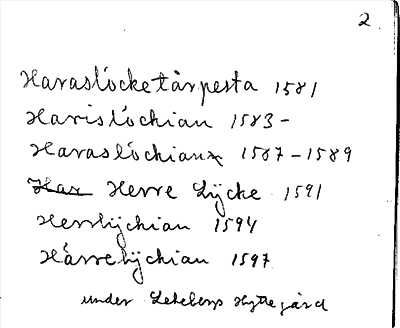 2
Haraslöcketårpesta 1581
Harislöchian 1583-
Haraslöchian 1587-1589
Har Herre Lÿcke 1591
Herrlÿchian 1594
Härrelÿchian 1597
under Lekebergs Hyttegård